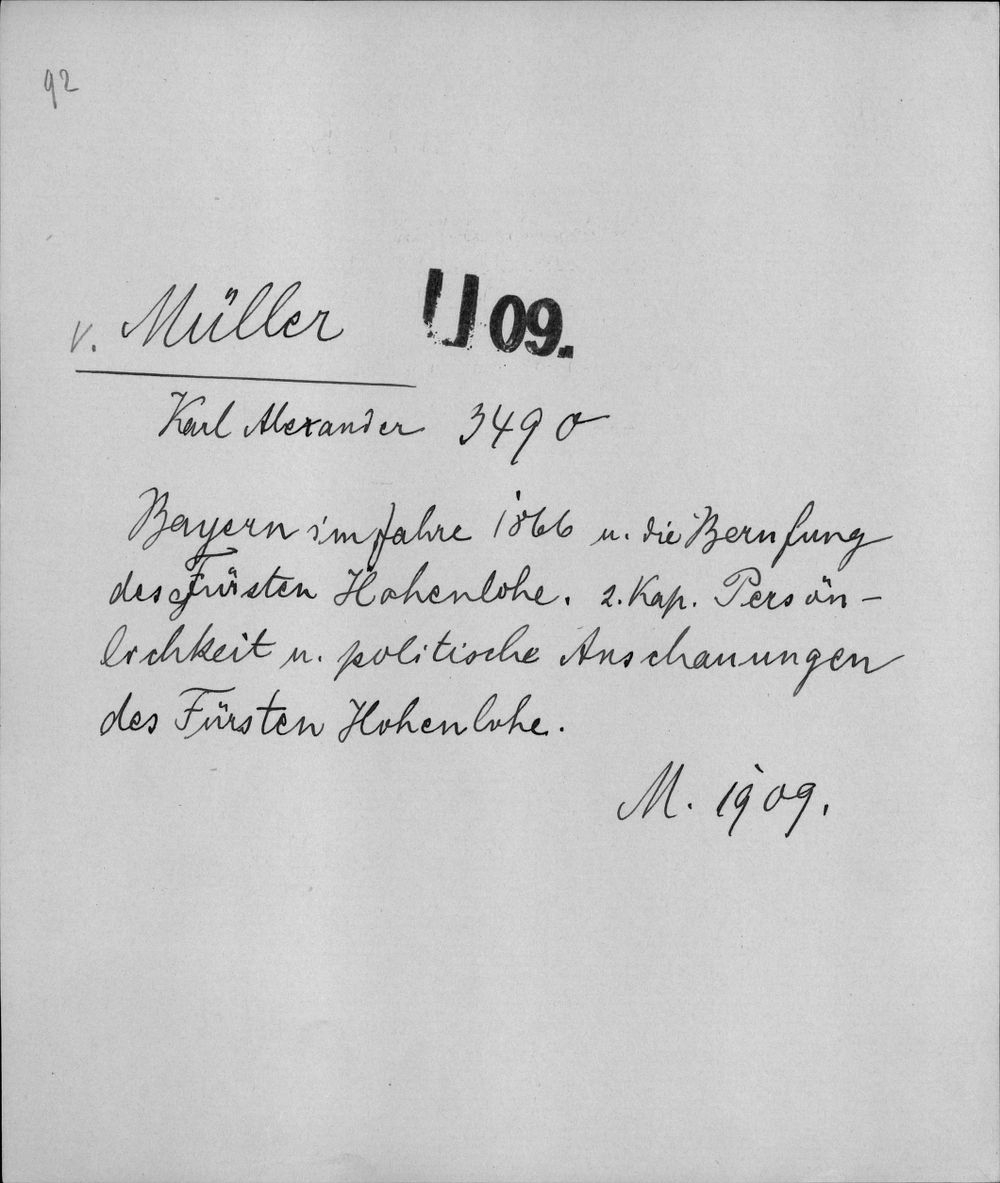 92
v. Müller U 09.
Karl Alexander 3490
Bayern im Jahre 1866 u. die Berufung
des Fürsten Hohenlohe. 2. Kap. Persön-
lichkeit u. politische Anschauungen
des Fürsten Hohenlohe.
M. 1909.